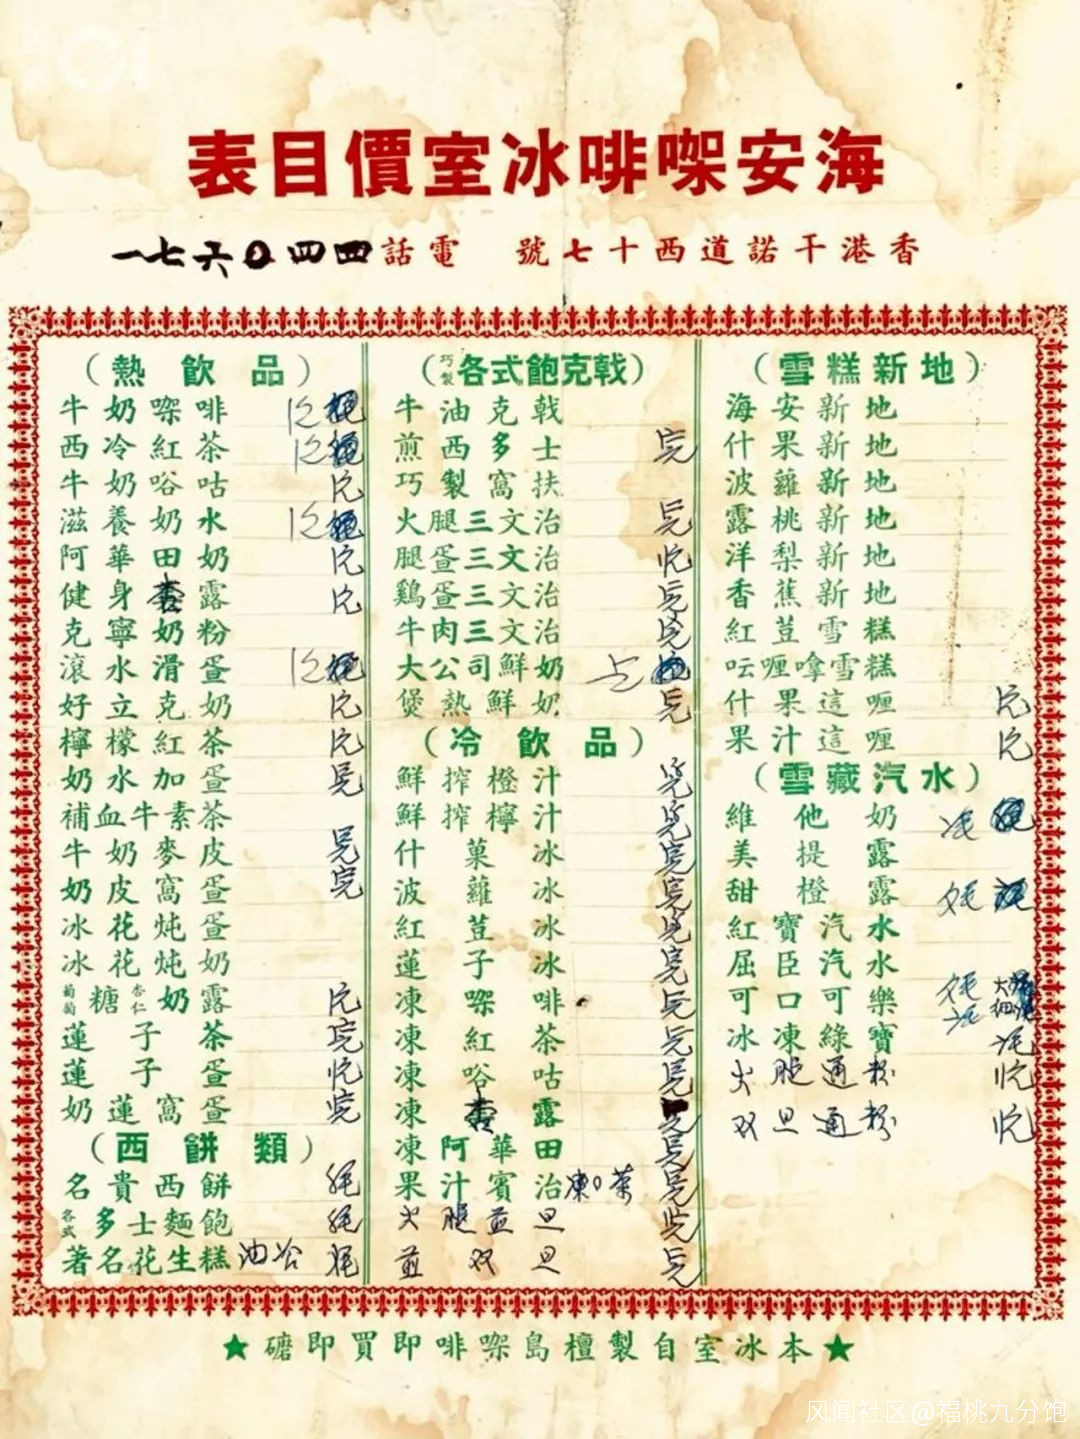 海安㗎啡冰室價目表
香港干諾道西十七號 電話四四〇六七一
（熱飲品）
牛奶㗎啡
西冷紅茶
牛奶唂咕
滋養奶水
阿華田奶
健身杏露
克寧奶粉
滾水滑蛋
好立克奶
檸檬紅茶
奶水加蛋
補血牛素茶
牛奶麥皮
奶皮窩蛋
冰花炖蛋
冰花炖奶
葡萄糖杏仁奶露
蓮子茶
蓮子蛋
奶蓮窩蛋
（西餅類）
名貴西餅
各式多士麵飽
著名花生糕 油占
（巧製各式飽克戟）
牛油克戟
煎西多士
巧製窩扶
火腿三文治
腿蛋三文治
鷄蛋三文治
牛肉三文治
大公司鮮奶
煲熱鮮奶
（冷飲品）
鮮搾橙汁
鮮搾檸汁
什菓冰
波蘿冰
紅荳冰
蓮子冰
凍㗎啡
凍紅茶
凍唂咕
凍杏露
凍阿華田
果汁賓治
火腿煎旦
煎双旦
（雪糕新地）
海安新地
什果新地
波蘿新地
露桃新地
洋梨新地
香蕉新地
紅荳雪糕
呍喱嗱雪糕
什果這喱
果汁這喱
（雪藏汽水）
維他奶
美提露
甜橙露
紅寶汽水
屈臣汽水
可口可樂 大 細
冰凍綠寶
火腿通粉
双旦通粉
★本冰室自製檀島㗎啡即買即磨★
风闻社区@福桃九分饱